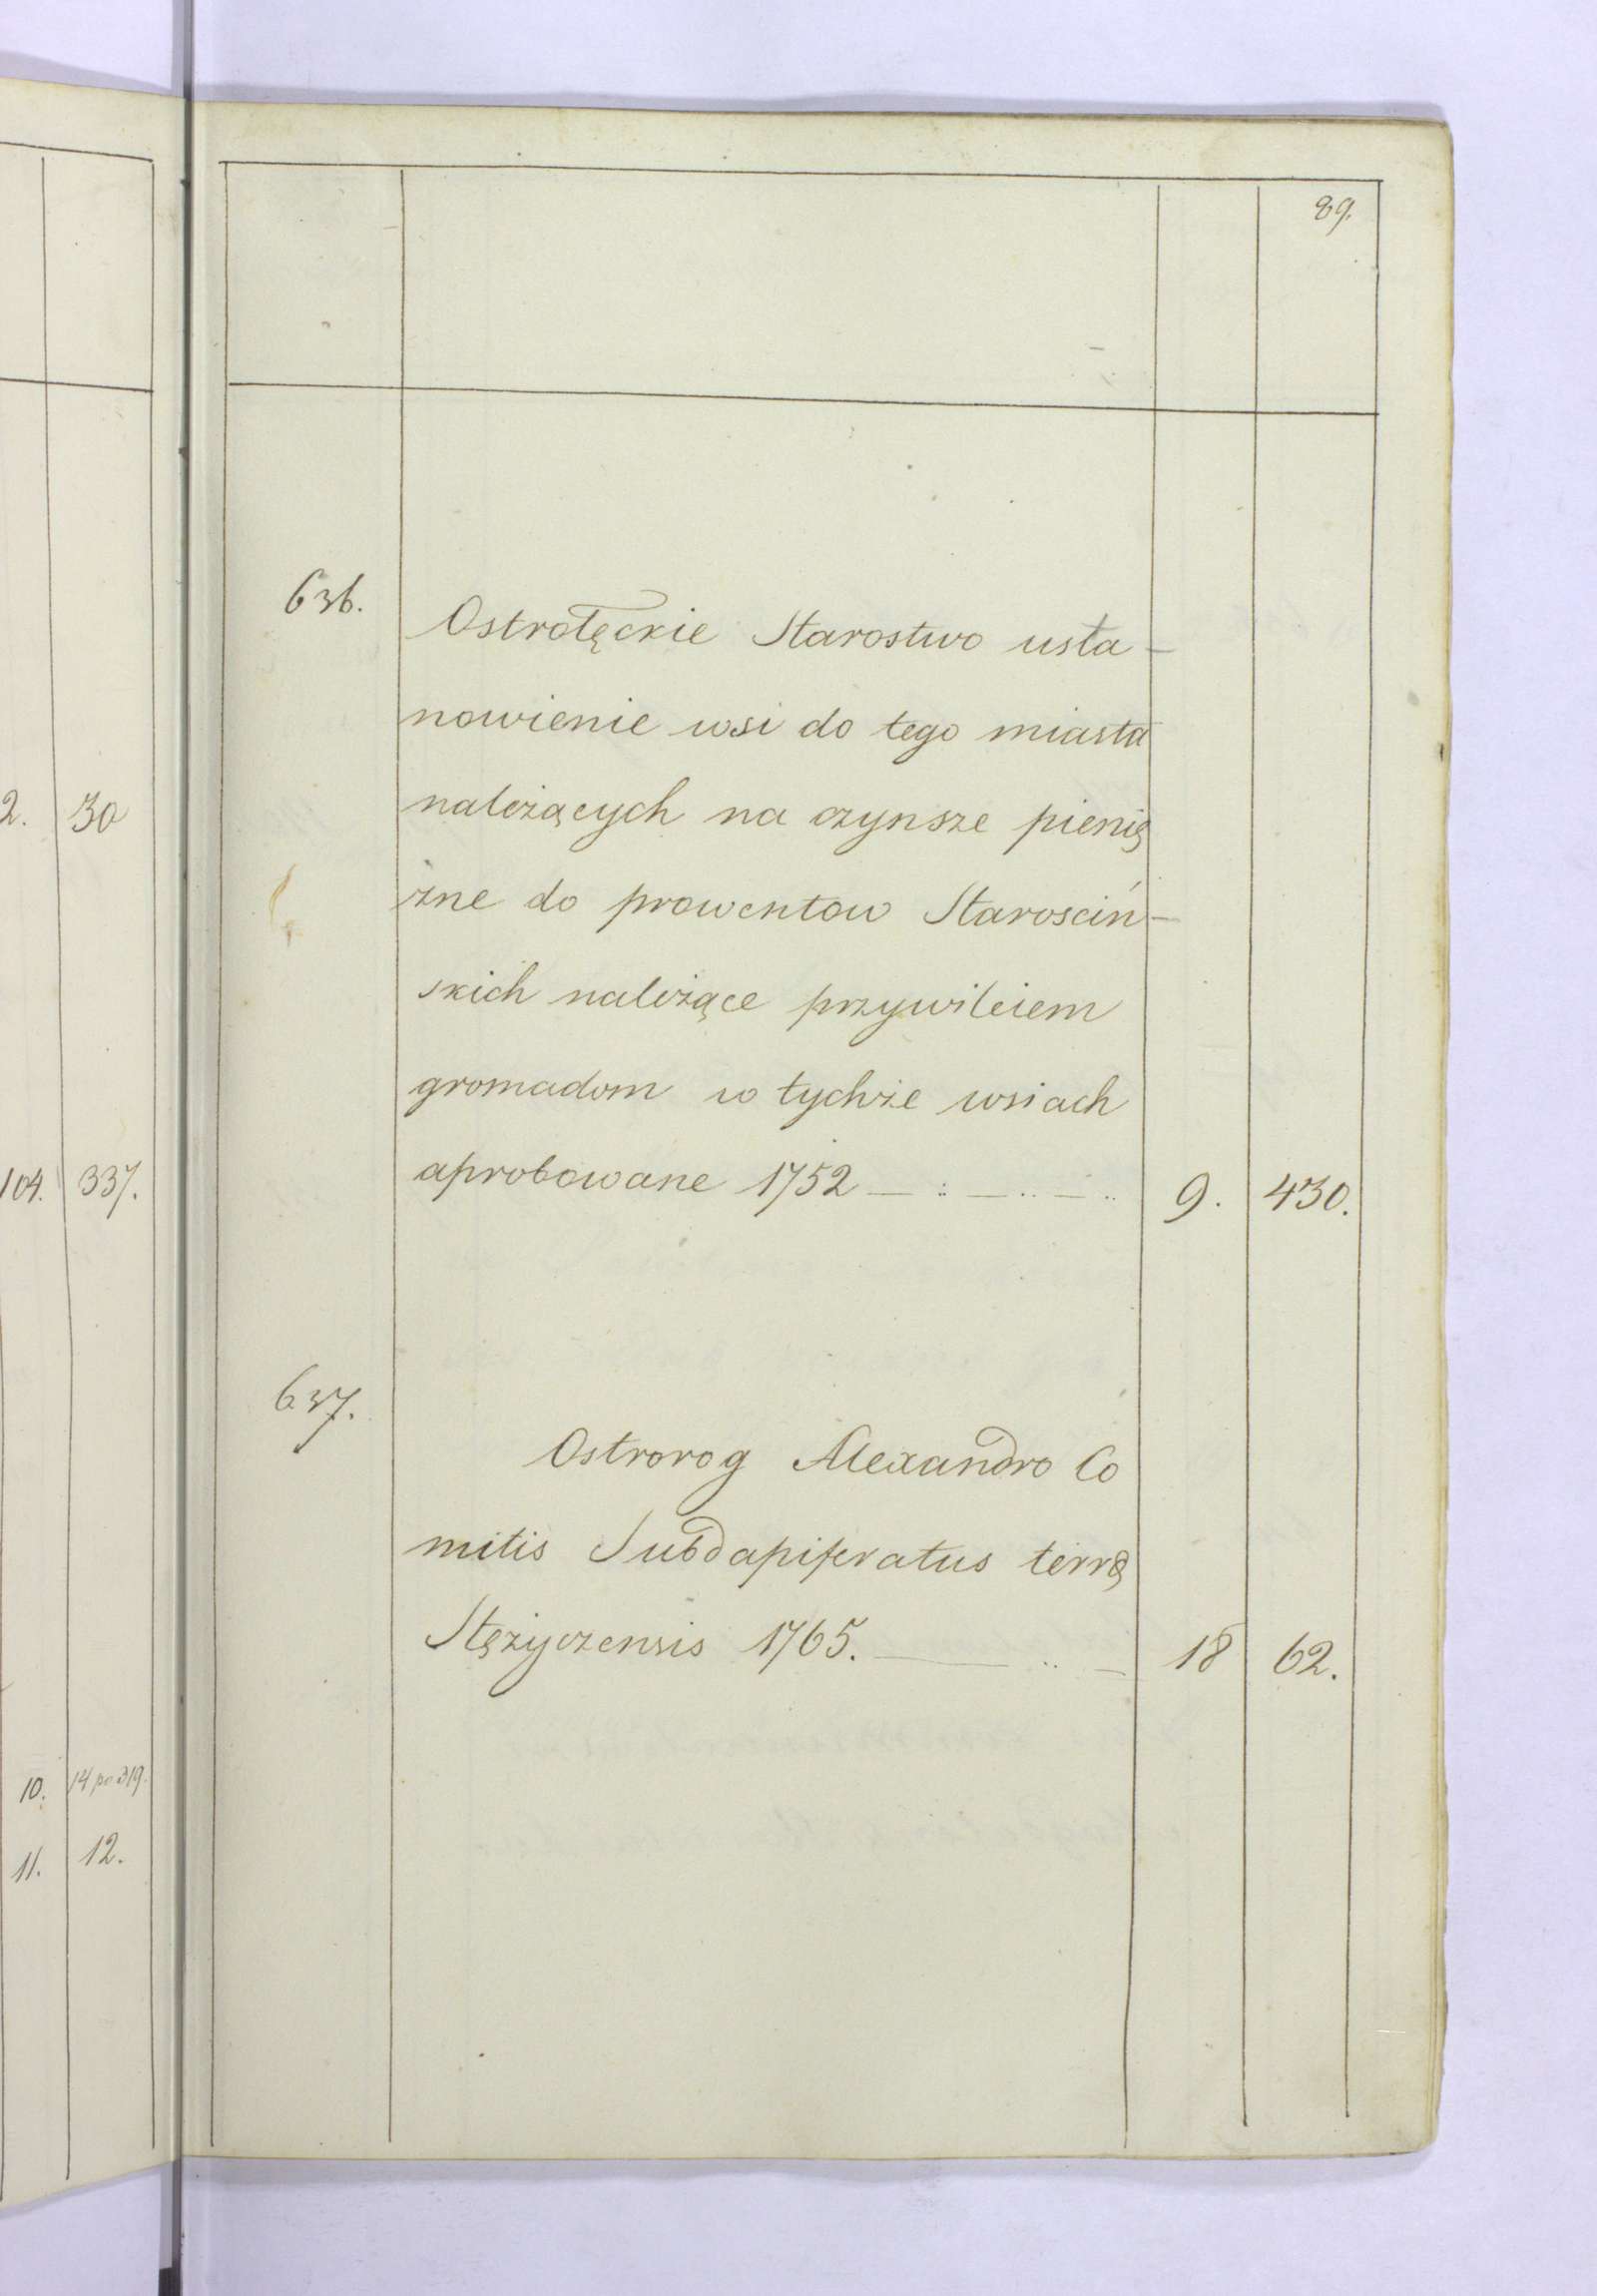 89.
2. 30
104. 337.
10. 14 pod 19.
11. 12.
636. Ostrołęckie Starostwo usta-
nowienie wsi do tego miasta
należących na czynsze pienię
żne do prowentow Starosciń-
skich należące przywileiem
gromadom w tychże wsiach
aprobowane 1752 9. 430.
637. Ostrorog Alexandro Co
mitis Subdapiferatus terrę
Stężyczensis 1765. 18 62.